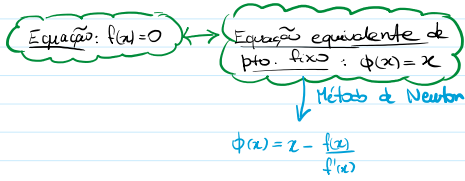 Equação: f(x)=0 ↔ Equação equivalente de
pto. fixo : φ(x) = x
Método de Newton
φ(x) = x - f(x)/f'(x)